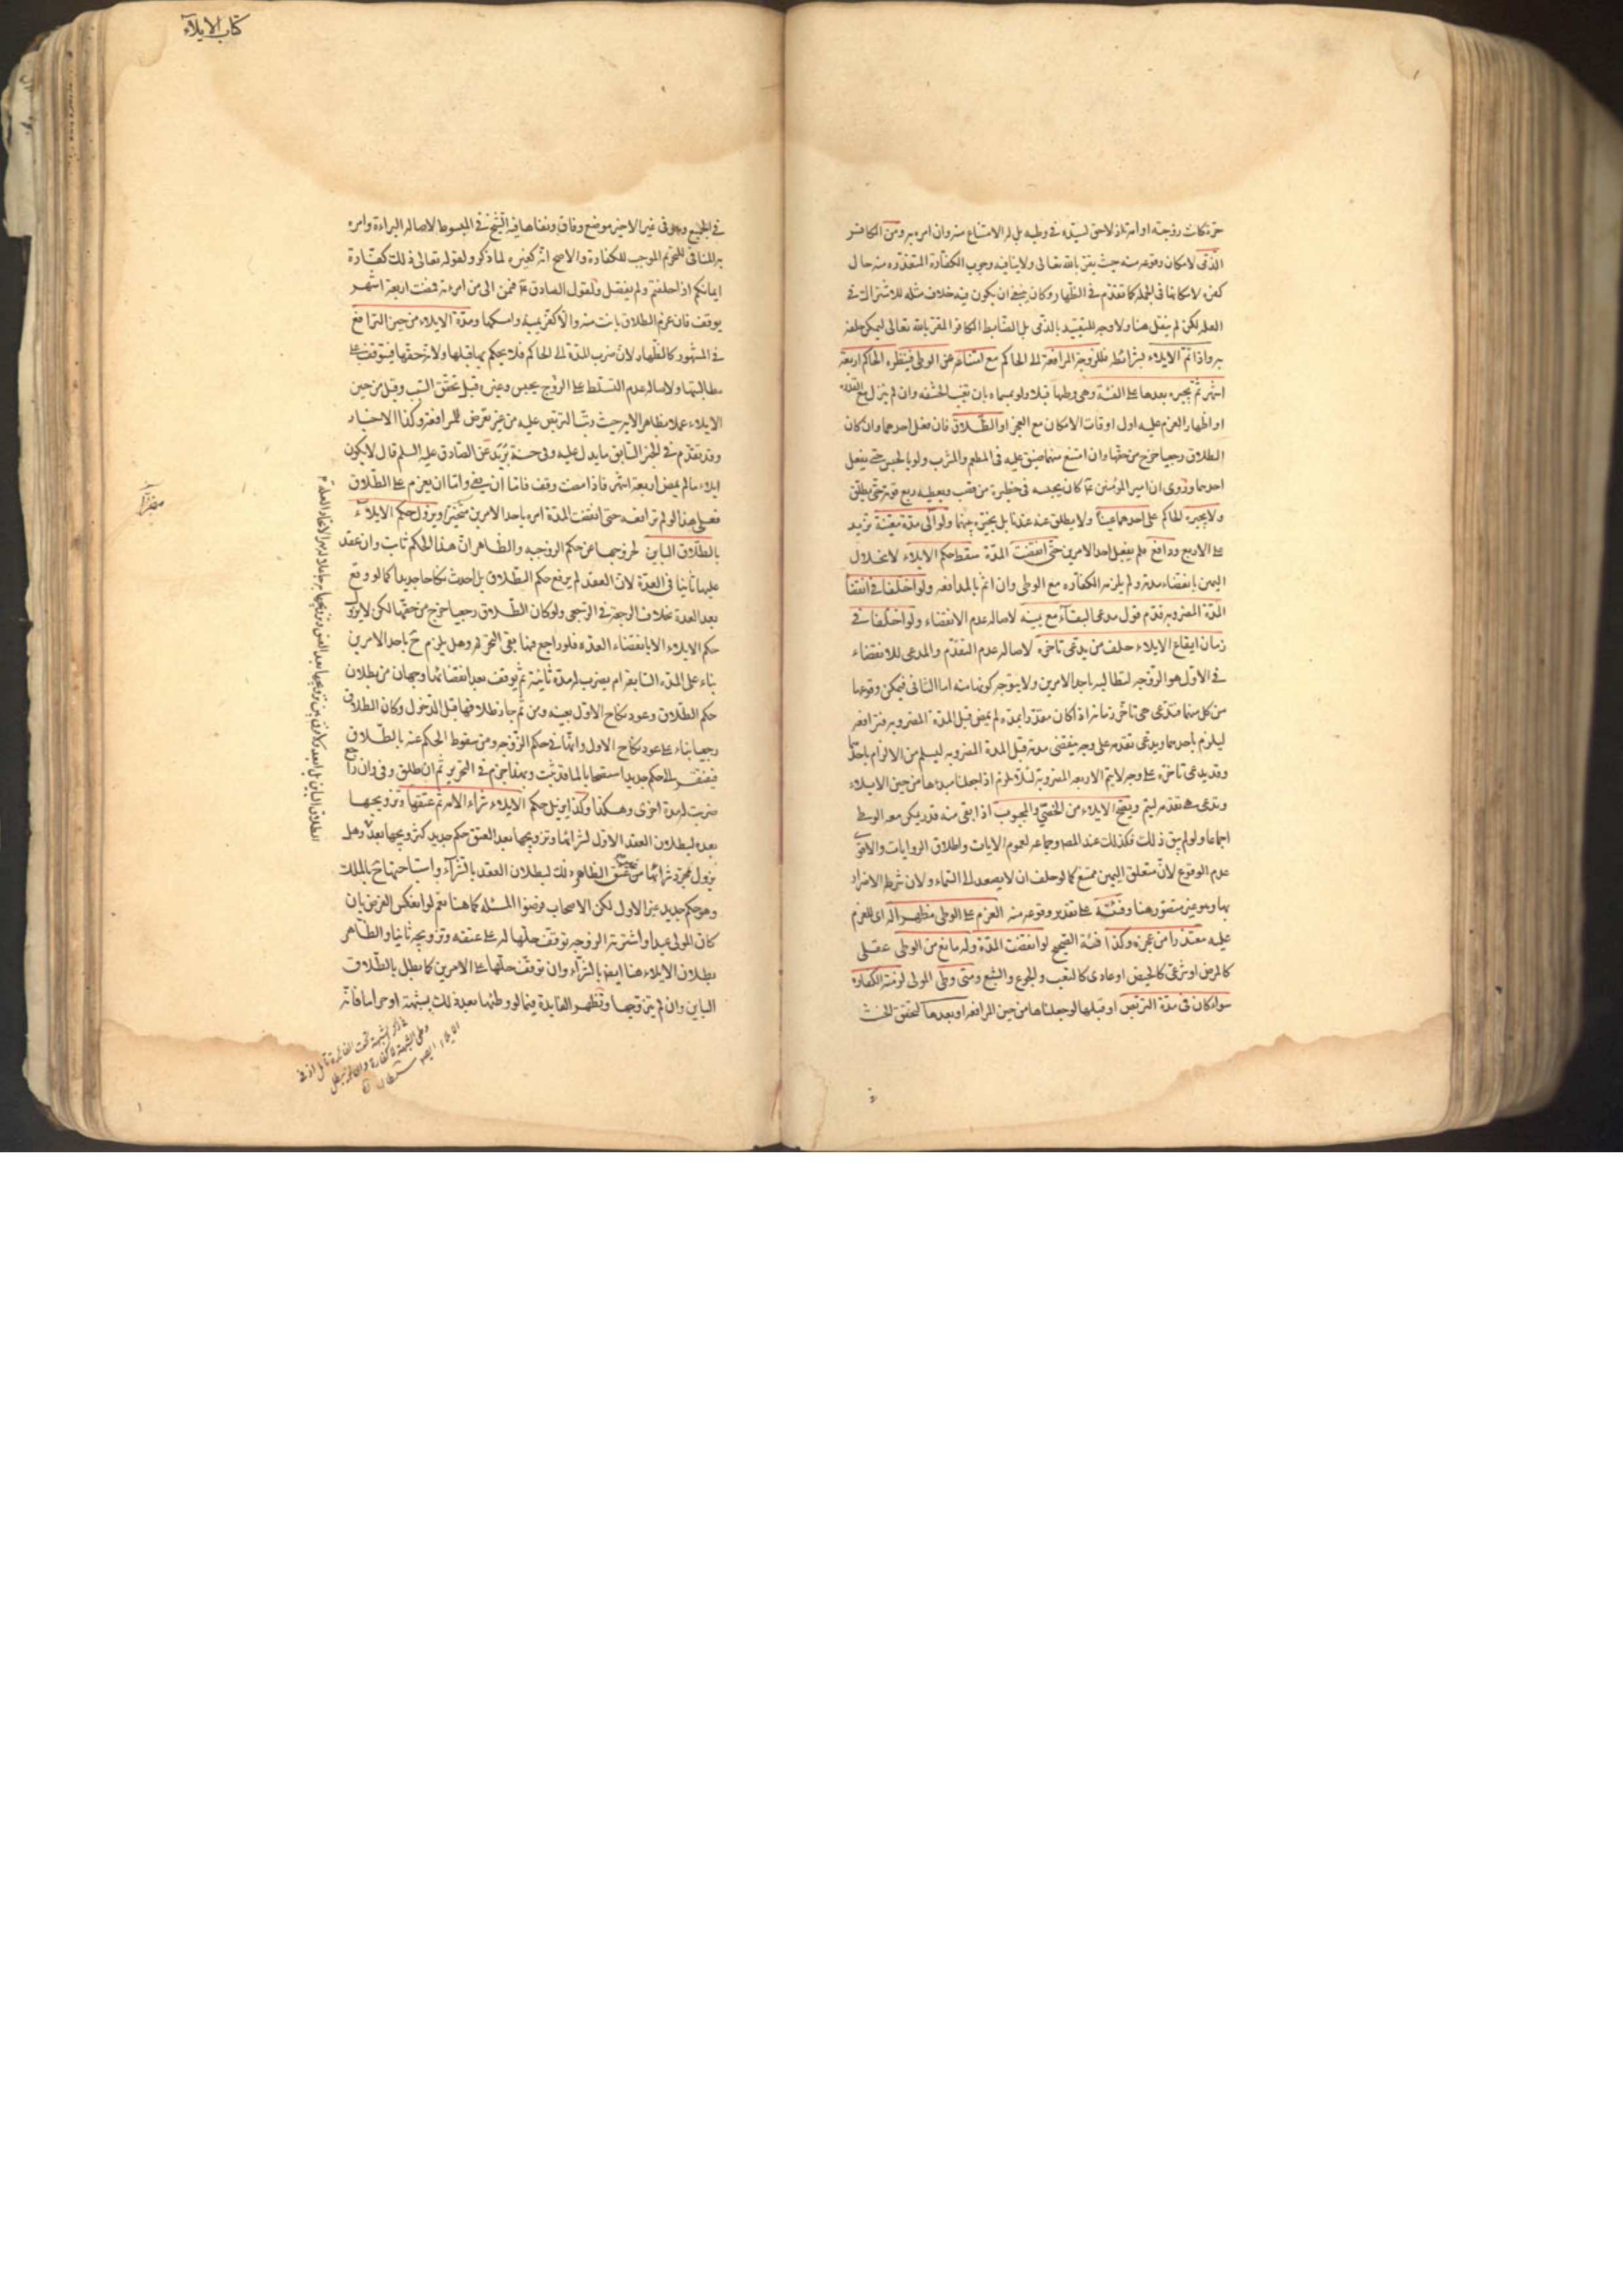 حرة كانت زوجته او امة اذ لاحق لسيده فى وطيه بل له الامتناع منه وان امره به ومن الكافر
الذمى لامكان وقوعه منه حيث يقر بالله تعالى ولا ينافيه وجوب الكفارة المتعذره منه حال
كفره لامكانها فى الجملة كما تقدم فى الظهار وكان ينبغى ان يكون فيه خلاف مثله للاشتراك فى
العلة لكن لم ينقل هنا ولا وجه للتقييد بالذمى بل الضابط الكافر المقر بالله تعالى ليمكن حلفه
به واذا تم الايلاء بشرائطه فللزوجة المرافعة الى الحاكم مع امتناعه عن الوطى فينظره الحاكم اربعة
اشهر ثم يجبره بعدها على الفئة وهى وطيها قبلا ولو بمسماه بان تغيب الحشفه وان لم ينزل مع القدرة
او اظهار العزم عليه اول اوقات الامكان مع العجز او الطلاق فان فعل احدهما وان كان
الطلاق رجعيا خرج من حقها وان امتنع منهما ضيق عليه فى المطعم والمشرب ولو بالحبس حتى يفعل
احدهما وروى ان امير المؤمنين ع كان يحبسه فى حظيرة من قصب ويعطيه ربع قوته حتى يطلق
ولا يجبره الحاكم على احدهما عينا ولا يطلق عنه عندنا بل يخيره بينهما ولو الى مدة معينة تزيد
على الاربع ودافع فلم يفعل احد الامرين حتى انقضت المدة سقط حكم الايلاء لانحلال
اليمين بانقضاء مدته ولم يلزمه الكفاره مع الوطى وان اثم بالمدافعه ولو اختلفا فى انقضا
المدة المضروبه قدم قول مدعى البقآء مع يمينه لاصاله عدم الانقضاء ولو اختلفا فى
زمان ايقاع الايلاء حلف من يدعى تاخره لاصاله عدم التقدم والمدعى للانقضاء
فى الاول هو الزوجه لتطالبه باحد الامرين ولا يتوجه كونها منه اما الثانى فيمكن وقوعها
من كل منهما فتدعى هى تاخر زمانه اذا كان مقدرا بمدة لم يمض قبل المدة المضروبه فترافعه
ليلزم باحدهما ويدعى تقدمه على وجه ينقضى مدته قبل المدة المضروبه ليسلم من الالزام باحدهما
وقد يدعى تاخره على وجه لا يتم الاربعه المضروبة لئلا يلزم اذا جعلنا مبدءها من حين الايلاء
وتدعى هى تقدمه ليتم ويصح الايلاء من الخصى والمجبوب اذا بقى منه قدر يمكن معه الوطى
اجماعا ولو لم يبق ذلك فكذلك عند المصـ وجماعه لعموم الايات واطلاق الروايات والاقوى
عدم الوقوع لان متعلق اليمين ممتنع كما لو حلف ان لا يصعد الى السماء ولان شرطه الاضرار
بها وهو غير متصور هنا وفئته على تقدير وقوعه منه العزم على الوطى مظهرا له اى للعزم
عليه معتذرا من عجزه وكذا فئة الصحيح لو انقضت المدة وله مانع من الوطى عقلى
كالمرض او شرعى كالحيض او عادى كالتعب والجوع والشبع ومتى وطى المولى لزمته الكفاره
سواء كان فى مدة التربص او قبلها لو جعلناها من حين المرافعه او بعدها لتحقق الحنث
كتاب الايلآء
فى الجميع وهو فى غير الاخير موضع وفاق ونفاها فيه الشيخ فى المبسوط لاصالة البراءة وامره
به المنافى للتحريم الموجب للكفارة والاصح انه كغيره لما ذكر ولقوله تعالى ذلك كفارة
ايمانكم اذا حلفتم ولم يفصل ولقول الصادق ع فمن الى من امرءته فمضت اربعة اشهر
يوقف فان عزم الطلاق بانت منه والا كفر يمينه وامسكها ومدة الايلاء من حين الترافع
فى المشهور كالظهار ولان ضرب المدة الى الحاكم فلا يحكم بها قبلها ولانه حقها فيتوقف على
مطالبتها ولاصاله عدم التسلط على الزوج بحبس وغيره قبل تحقق السبب وقيل من حين
الايلاء عملا بظاهر الايه حيث رتب التربص عليه من غير تعرض للمرافعه وكذا الاخبار
وقد تقدم فى الخبر السابق ما يدل عليه وفى حسنة بريد عن الصادق عليه السلم قال لا يكون
ايلاء ما لم يمض اربعة اشهر فاذا مضت وقف فاما ان يفئ واما ان يعزم على الطلاق
فعلى هذا لو لم ترافعه حتى انقضت المدة امره باحد الامرين منجزا ويزول حكم الايلآء
بالطلاق الباين لخروجها عن حكم الزوجيه والظاهر ان هذا الحكم ثابت وان عقد
عليها ثانيا فى العدة لان العقد لم يرفع حكم الطلاق بل احدث نكاحا جديدا كما لو وقع
بعد العدة بخلاف الرجعة فى الرجعى ولو كان الطلاق رجعيا خرج من حقها لكن لا يزول
حكم الايلاء الا بانقضاء العده فلو راجع فيها بقى التحريم وهل يلزم ح باحد الامرين
بناء على المدة السابقه ام يضرب له مدة ثانية ثم يوقف بعد انقضائها وجهان من بطلان
حكم الطلاق وعود نكاح الاول بعينه ومن ثم جاز طلاقها قبل الدخول وكان الطلاق
رجعيا بناء على عود نكاح الاول وانها فى حكم الزوجه ومن سقوط الحكم عنه بالطلاق
فيفتقر الى حكم جديد استصحابا لما قد ثبت وبهذا جزم فى التحرير ثم ان طلق وفى وان راجع
ضربت له مدة اخرى وهكذا وكذا يزيل حكم الايلاء شراء الامه ثم عتقها وتزويجها
بعده لبطلان العقد الاول بشرائها وتزويجها بعد العتق حكم جديد كتزويجها بعد وهل
يزول بمجرد شرائها من غير عتق الظاهر ذلك لبطلان العقد بالشرآء واستباحتها ح بالملك
وهو حكم جديد غير الاول لكن الاصحاب فرضوا المسئله كما هنا نعم لو انعكس الفرض بان
كان المولى عبدا واشترته الزوجه توقف حلها له على عتقه وتزويجه ثانيا والظاهر
بطلان الايلاء هنا ايضا بالشرآء وان توقف حلها على الامرين كما بطل بالطلاق
الباين وان لم يتزوجها وتظهر الفايدة فيما لو وطئها بعد ذلك بشبهة او حراما فانه